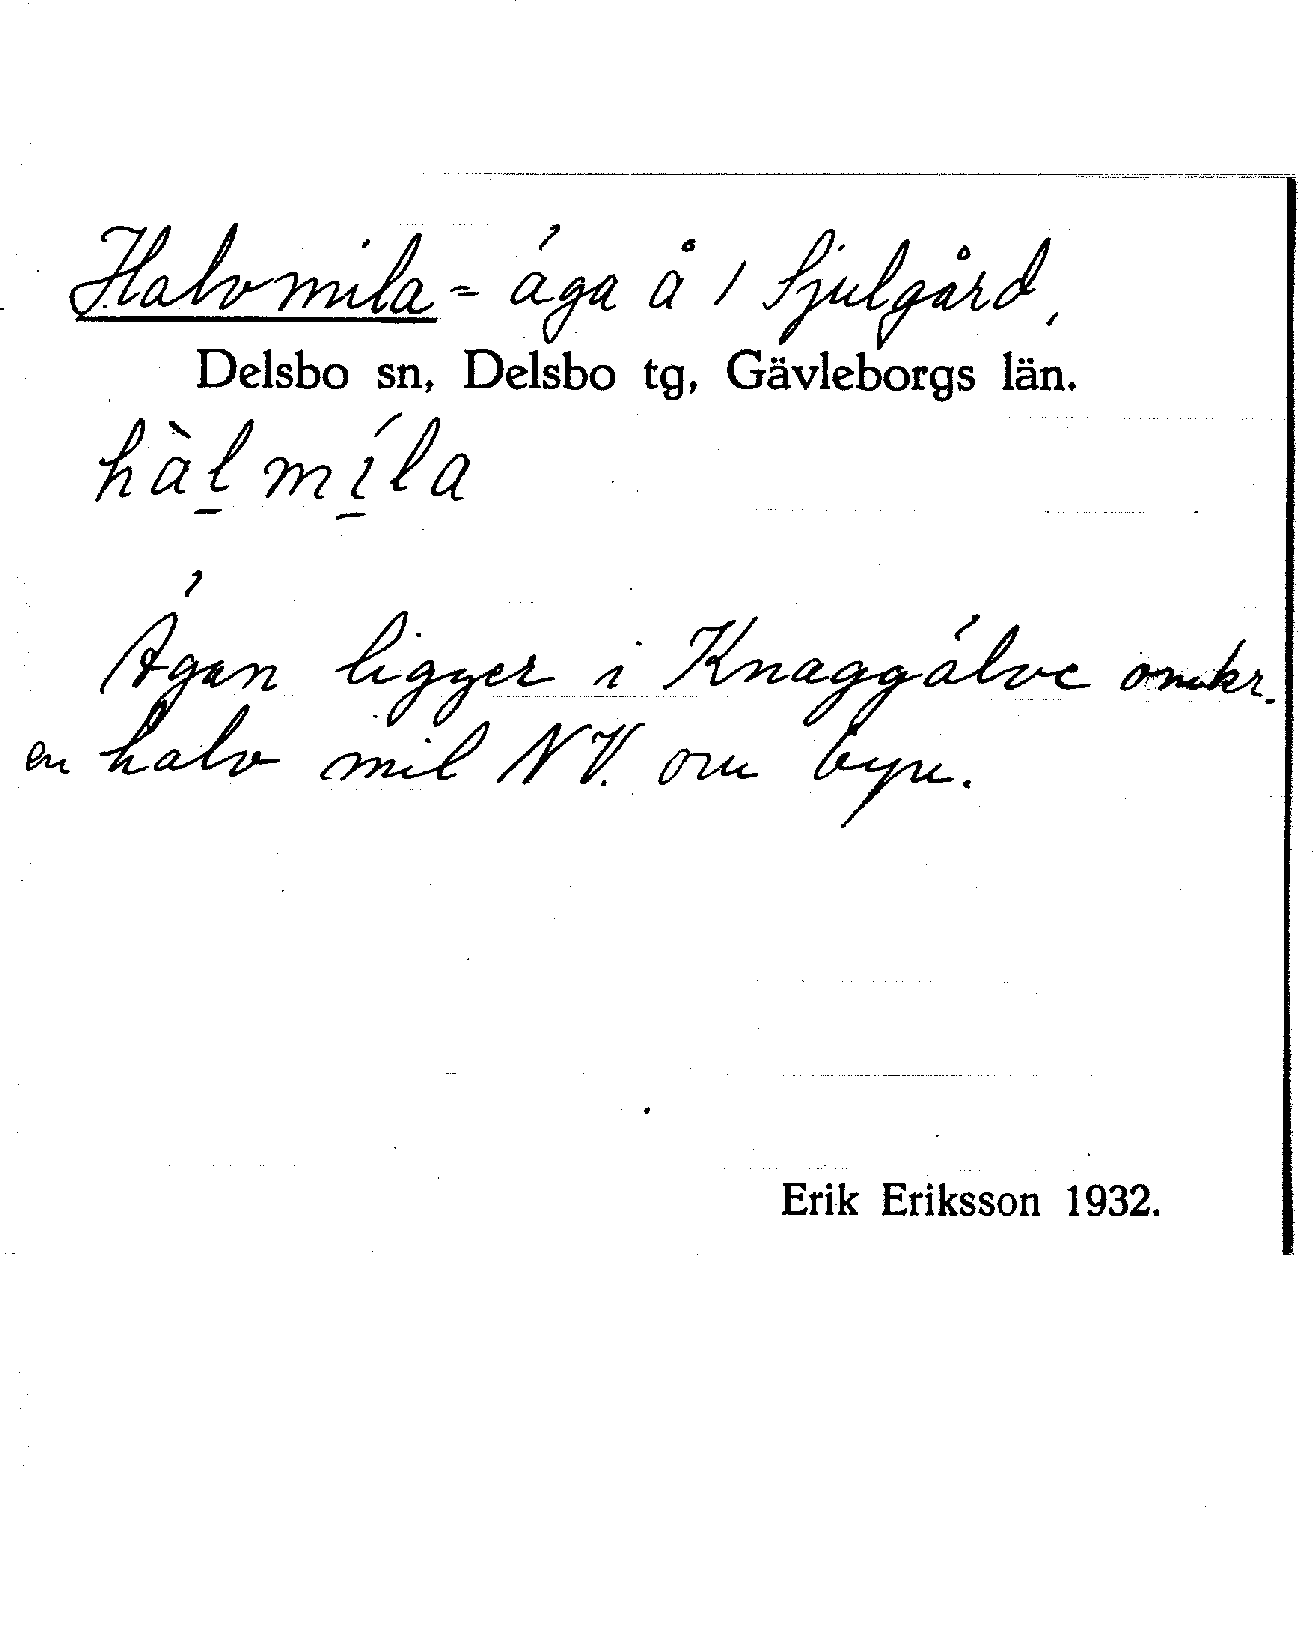 Halvmila = ága å / Sjulgård,
Delsbo sn, Delsbo tg, Gävleborgs län.
hàl̠mí̠la
Ágan ligger i Knaggálve omkr.
en halv mil NV. om byn.
Erik Eriksson 1932.